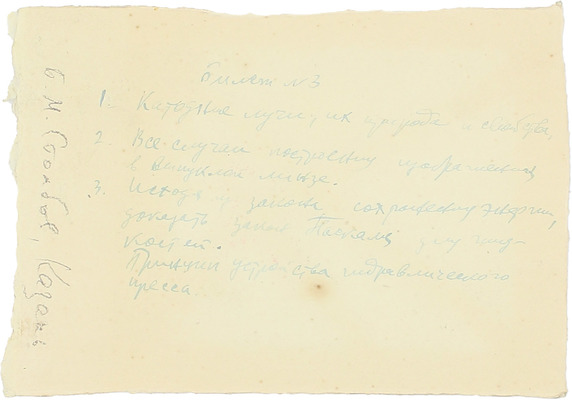 Билет №3
1. Катодные лучи, их природа и свойства.
2. Все случаи построения изображения
в выпуклой линзе.
3. Исходя из закона сохранения энергии,
доказать закон Паскаля для жид-
костей.
Принцип устройства гидравлического
пресса.
Б. М. Столбов, Казань